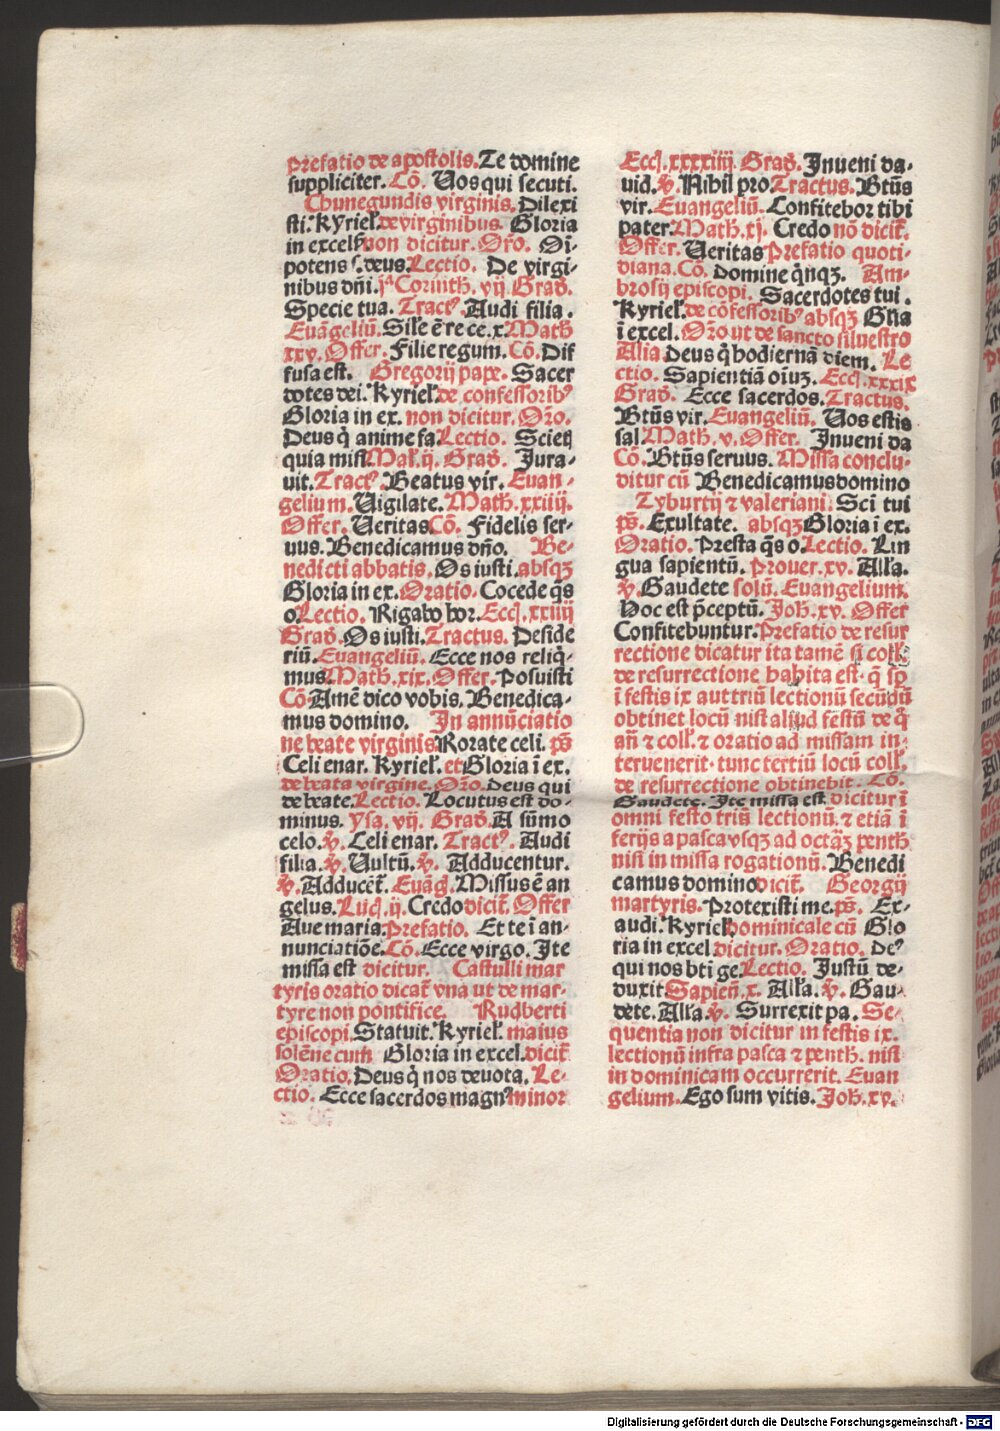 Prefatio de apostolis. Te domine
suppliciter. Cō. Uos qui secuti.
Chunegundis virginis. Dilexi
sti. Kyriel. de virginibus. Gloria
in excels. non dicitur. Oꝛo. Oi-
potens s. deus. Lectio. De virgi-
nibus dn̄i. jᵃ Corinth. vij Grad.
Specie tua. Tractꝰ. Audi filia.
Euāgeliū. Sile ē re ce. x. Math
xxv. Offer. Filie regum. Cō. Dif
fusa est. Gregorij pape. Sacer
dotes dei. Kyriel. de confessoribꝰ
Gloria in ex. non dicitur. Oꝛo.
Deus q̄ anime fa. Lectio. Sciens
quia mist. Mal. ij. Grad. Jura-
uit. Tractꝰ. Beatus vir. Euan-
gelium. Uigilate. Math. xxiiij.
Offer. Ueritas. Cō. Fidelis ser-
uus. Benedicamus dn̄o. Be-
nedicti abbatis. Os iusti. absqꝫ
Gloria in ex. Oratio. Cōcede q̄s
o. Lectio. Rigabo hor. Eccl. xxiiij
Grad. Os iusti. Tractus. Deside
riū. Euangeliū. Ecce nos reliq̄-
mus. Math. xix. Offer. Posuisti
Cō. Amē dico vobis. Benedica-
mus domino. In annūciatio
ne beate virginis Rorate celi. ps̄
Celi enar. Kyriel. et Gloria ī ex.
de beata virgine. Oꝛo. Deus qui
de beate. Lectio. Locutus est do-
minus. Ysa. vij. Grad. A sūmo
celo. ꝟ. Celi enar. Tractꝰ. Audi
filia. ꝟ. Uultū. ꝟ. Adducentur.
ꝟ. Adducet̄. Euāg. Missus ē an
gelus. Luc. ij. Credo dicit̄. Offer
Aue maria. Prefatio. Et te ī an-
nunciatiōe. Cō. Ecce virgo. Ite
missa est dicitur. Castulli mar
tyris oratio dicat̄ vna ut de mar-
tyre non pontifice. Rudberti
episcopi. Statuit. Kyriel. maius
solēne cum Gloria in excel. dicit̄
Oratio. Deus q̄ nos deuota. Le-
ctio. Ecce sacerdos magnꝰ minor
Eccl. xxxxiiij. Grad. Inueni da-
uid. ꝟ. Nihil pro. Tractus. Bt̄us
vir. Euangeliū. Confitebor tibi
pater. Math. xj. Credo nō dicit̄.
Offer. Ueritas Prefatio quoti-
diana. Cō. Domine q̄nqꝫ. Am-
brosij episcopi. Sacerdotes tui.
Kyriel. de cōfessoribꝰ absqꝫ Gl̄ia
ī excel. Oꝛo ut de sancto siluestro
Alia Deus q̄ hodiernā diem. Le
ctio. Sapientiā oiuꝫ. Eccl. xxxix
Grad. Ecce sacerdos. Tractus.
Bt̄us vir. Euangeliū. Uos estis
sal Math. v. Offer. Inueni da
Cō. Bt̄us seruus. Missa conclu-
ditur cū Benedicamus domino
Tyburtij ⁊ valeriani. Scī tui
ps̄. Exultate. absqꝫ Gloria ī ex.
Oratio. Presta q̄s o. Lectio. Lin
gua sapientū. Prouer. xv. All'a.
ꝟ. Gaudete solū. Euangelium.
Hoc est p̄ceptū. Joh. xv. Offer
Confitebuntur. Prefatio de resur
rectione dicatur ita tamē si coll.
de resurrectione habita est. q̄ sp̄
ī festis ix aut triū lectionū secūdū
obtinet locū nisi aliud festū de q̄
an̄ ⁊ coll. ⁊ oratio ad missam in-
teruenerit. tunc tertiū locū coll.
de resurrectione obtinebit. Cō.
Gaudete. Ite missa est dicitur ī
omni festo triū lectionū. ⁊ etiā ī
ferijs a pasca vsqꝫ ad octāꝫ penth.
nisi in missa rogationū. Benedi
camus domino dicit̄. Georgij
martyris. Protexisti me. ps̄. Ex-
audi. Kyriel dominicale cū Glo
ria in excel dicitur. Oratio. Deꝰ
qui nos bt̄i ge. Lectio. Justū de-
duxit Sapien̄. x. All'a. ꝟ. Gau-
dete. All'a. ꝟ. Surrexit pa. Se-
quentia non dicitur in festis ix.
lectionū infra pasca ⁊ penth. nisi
in dominicam occurrerit. Euan
gelium. Ego sum vitis. Joh. xv.
Digitalisierung gefördert durch die Deutsche Forschungsgemeinschaft - DFG